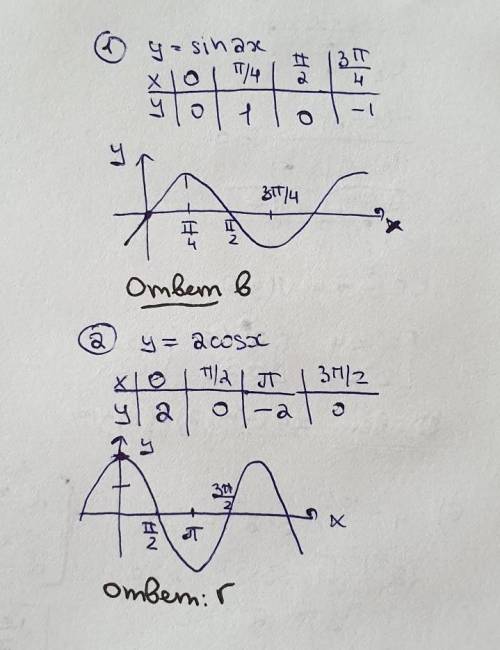 ① y = sin2x
x | 0 | π/4 | π/2 | 3π/4
y | 0 | 1 | 0 | -1
y
3π/4
π/4 π/2 x
Ответ в
② y = 2cosx
x | 0 | π/2 | π | 3π/2
y | 2 | 0 | -2 | 0
y
3π/2
π/2 π x
Ответ: г